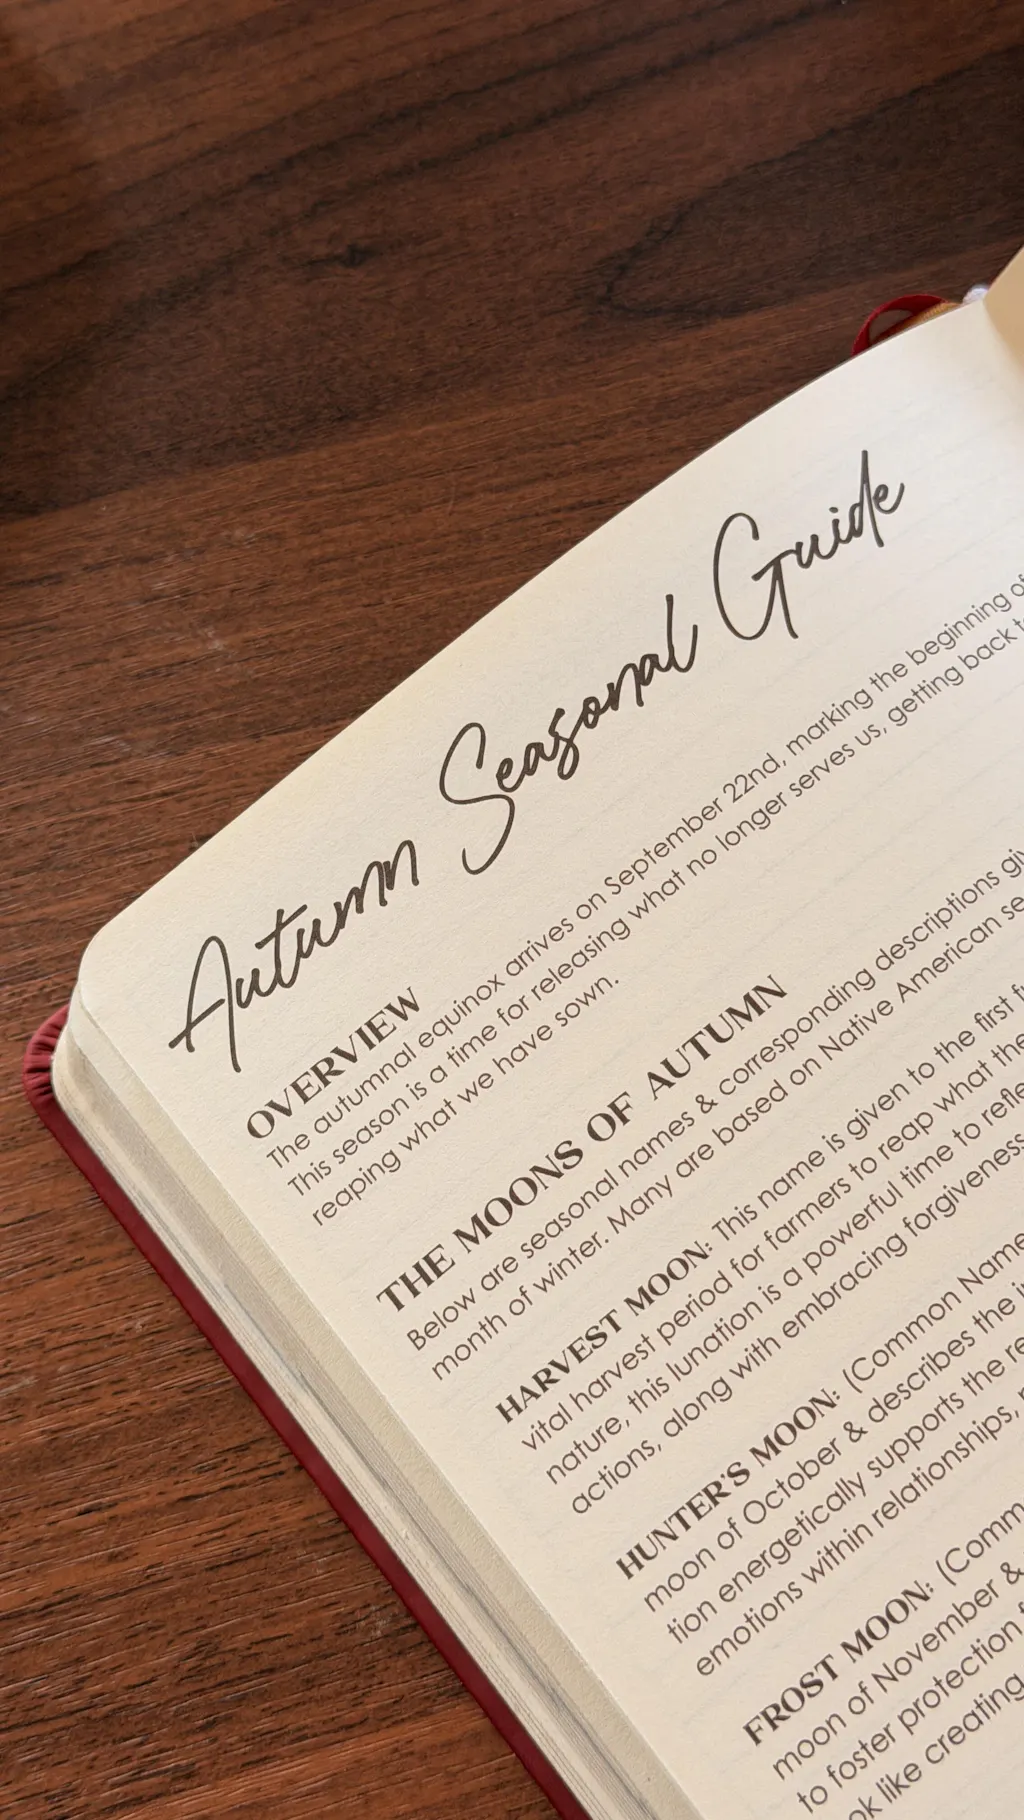 Autumn Seasonal Guide
OVERVIEW
The autumnal equinox arrives on September 22nd, marking the beginning of
This season is a time for releasing what no longer serves us, getting back
reaping what we have sown.
THE MOONS OF AUTUMN
Below are seasonal names & corresponding descriptions
month of winter. Many are based on Native American
HARVEST MOON: This name is given to the first
vital harvest period for farmers to reap what
nature, this lunation is a powerful time to
actions, along with embracing forgiveness
HUNTER'S MOON: (Common Name
moon of October & describes the
tion energetically supports the
emotions within relationships,
FROST MOON:
moon of November &
to foster protection
like creating